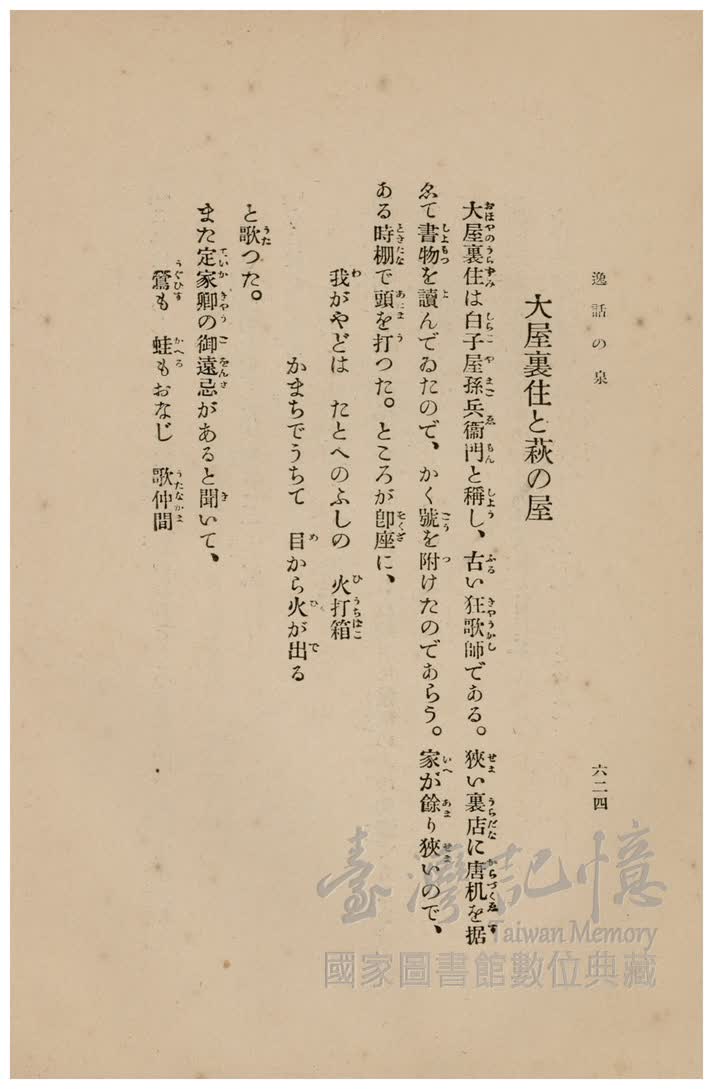 逸話の泉
六二四
大屋裏住と萩の屋
大屋裏住は白子屋孫兵衞門と稱し、古い狂歌師である。狹い裏店に唐机を据
ゑて書物を讀んでゐたので、かく號を附けたのであらう。家が餘り狹いので、
ある時棚で頭を打つた。ところが卽座に、
我がやどは たとへのふしの 火打箱
かまちでうちて 目から火が出る
と歌つた。
また定家卿の御遠忌があると聞いて、
鶯も 蛙もおなじ 歌仲間
臺灣記憶
Taiwan Memory
國家圖書館數位典藏